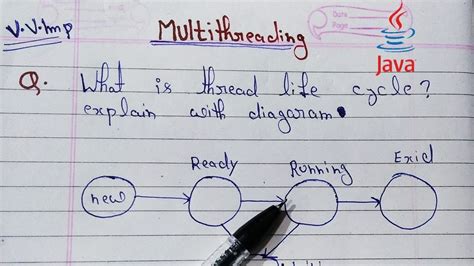 V.V.Imp
Multithreading
Date
Page
Java
Q. What is thread life cycle?
explain with diagaram.
Ready
Running
Exid
new